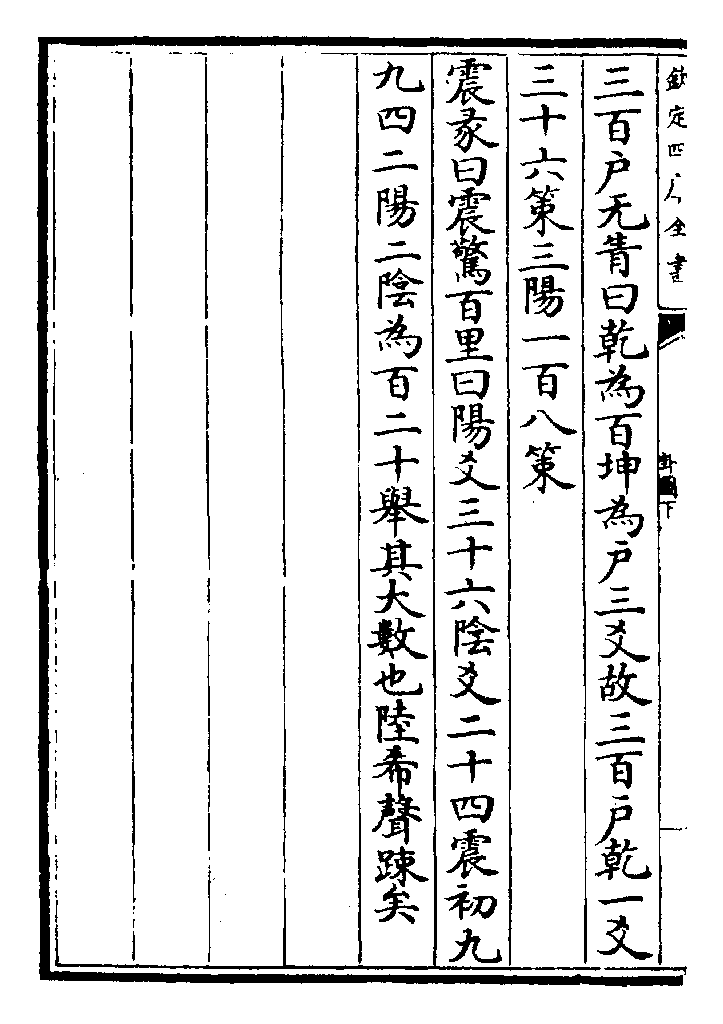 欽定四庫全書
卦圖下
三百户无眚曰乾為百坤為户三爻故三百户乾一爻
三十六策三陽一百八策
震彖曰震驚百里曰陽爻三十六陰爻二十四震初九
九四二陽二陰為百二十舉其大數也陸希聲踈矣